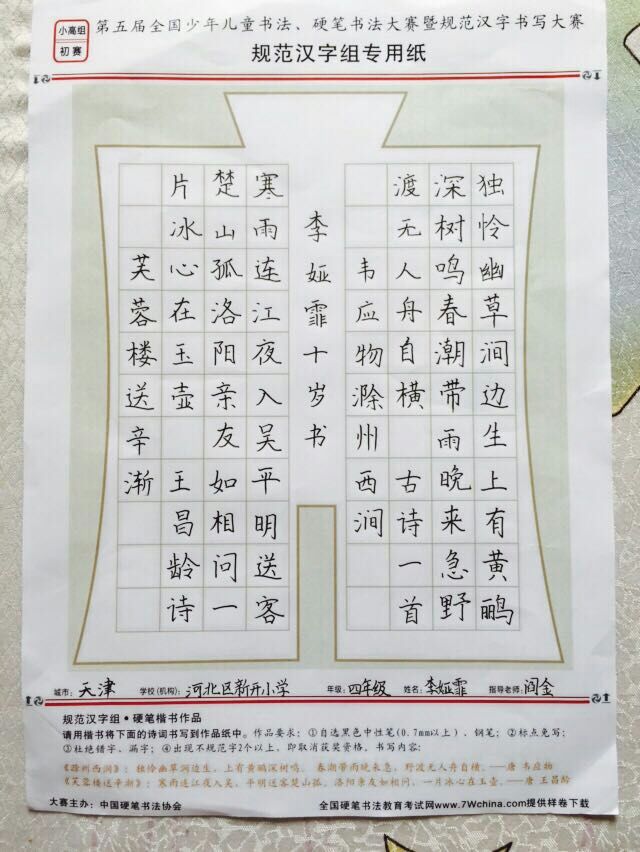 小高组
初赛
第五届全国少年儿童书法、硬笔书法大赛暨规范汉字书写大赛
规范汉字组专用纸
独怜幽草涧边生上有黄鹂
深树鸣春潮带雨晚来急野
渡无人舟自横 古诗一首
韦应物滁州西涧
李娅霏十岁书
寒雨连江夜入吴平明送客
楚山孤洛阳亲友如相问一
片冰心在玉壶 王昌龄诗
芙蓉楼送辛渐
城市：天津 学校(机构)：河北区新开小学 年级：四年级 姓名：李娅霏 指导老师：
规范汉字组·硬笔楷书作品
请用楷书将下面的诗词书写到作品纸中。作品要求：①自选黑色中性笔(0.7mm以上)、钢笔；②标点免写；
③杜绝错字、漏字；④出现不规范字2个以上，即取消获奖资格。书写内容：
《滁州西涧》：独怜幽草涧边生，上有黄鹂深树鸣。 春潮带雨晚来急，野渡无人舟自横。——唐 韦应物
《芙蓉楼送辛渐》：寒雨连江夜入吴，平明送客楚山孤。洛阳亲友如相问，一片冰心在玉壶。——唐 王昌龄
大赛主办：中国硬笔书法协会 全国硬笔书法教育考试网www.7Wchina.com提供样卷下载